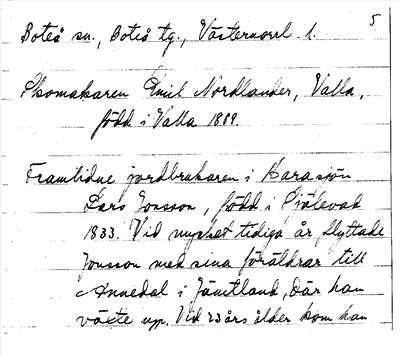 5
Boteå sn., Boteå tg., Västernorrl. l.
Skomakaren Emil Nordlander, Valla,
född i Valla 1889.
Framlidne jordbrukaren i Karasjön
Lars Jonsson, född i Själevad
1833. Vid mycket tidiga år flyttade
Jonsson med sina föräldrar till
Annedal i Jämtland, där han
växte upp. Vid 23 års ålder kom han